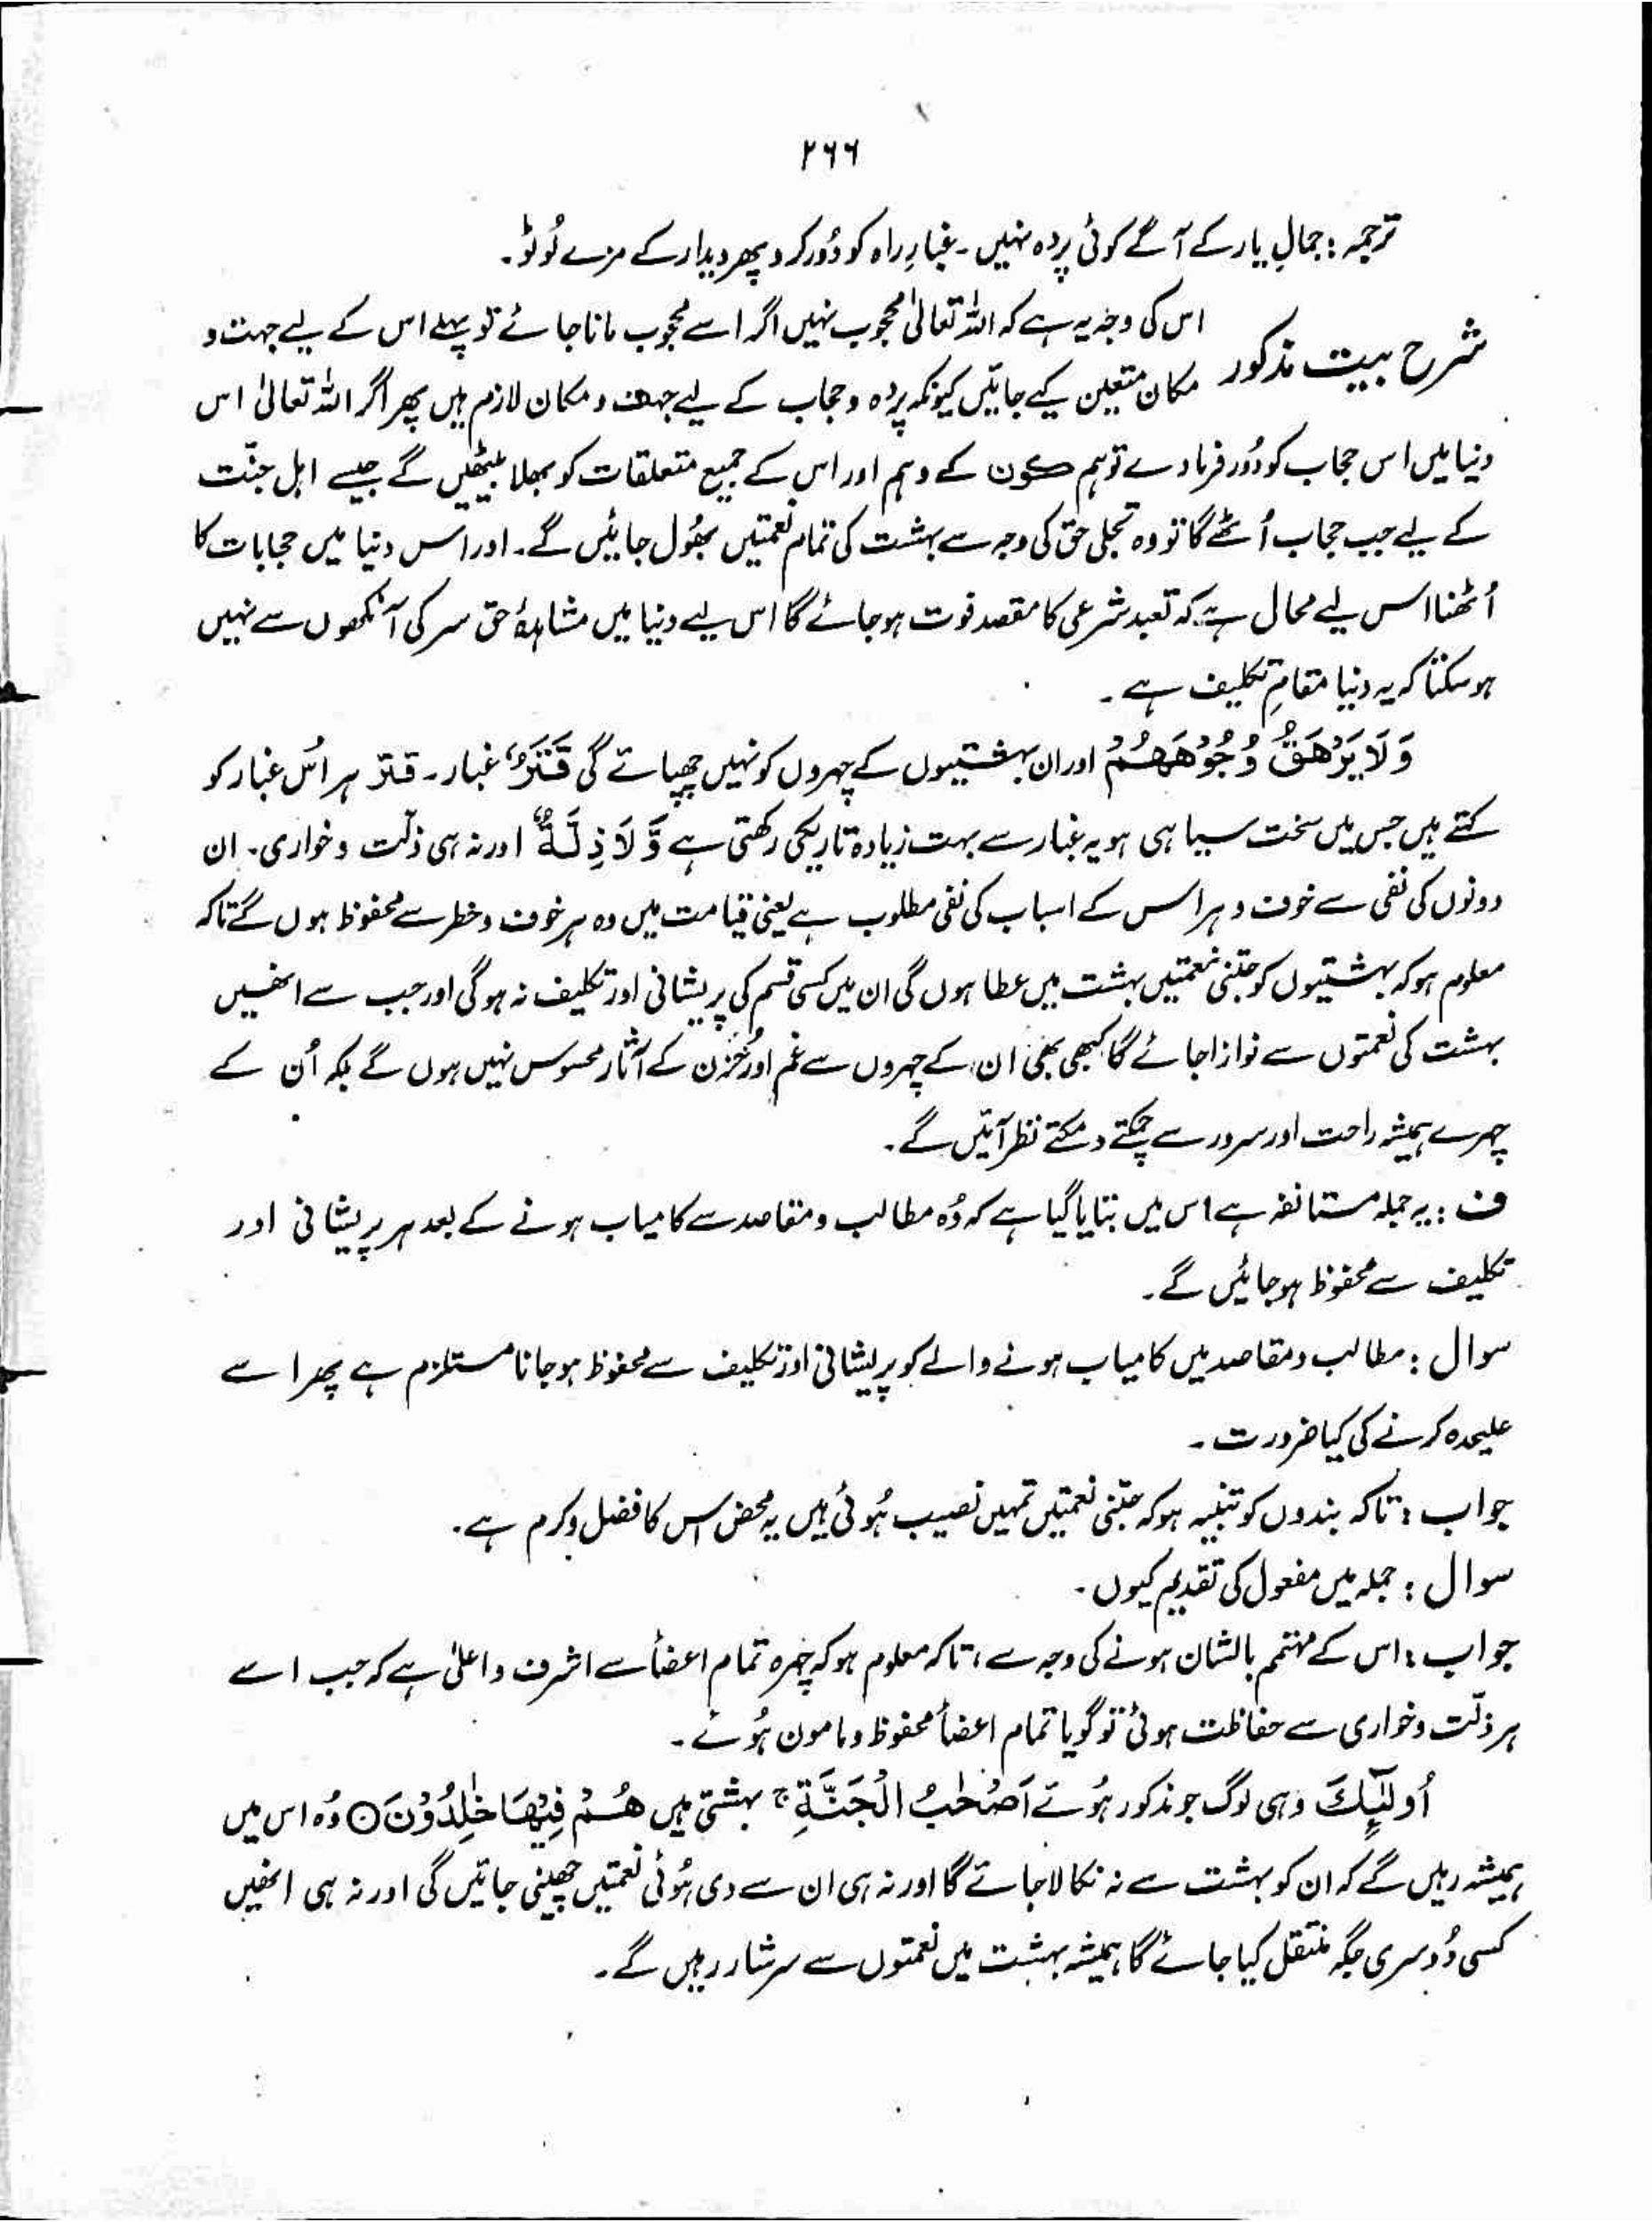 ۲۶۶
ترجمہ : جمالِ یار کے آگے کوئی پردہ نہیں ۔ غبارِ راہ کو دُور کرو پھر دیدار کے مزے لُوٹو ۔
شرح بیت مذکور
اس کی وجہ یہ ہے کہ اللہ تعالیٰ محجوب نہیں اگر اسے محجوب مانا جائے تو پہلے اس کے لیے جہت و
مکان متعین کیے جائیں کیونکہ پردہ و حجاب کے لیے جہت و مکان لازم ہیں پھر اگر اللہ تعالیٰ اس
دنیا میں اس حجاب کو دُور فرما دے تو ہم کون کے وہم اور اس کے جمیع متعلقات کو بھلا بیٹھیں گے جیسے اہل جنّت
کے لیے جب حجاب اُٹھے گا تو وہ تجلی حق کی وجہ سے بہشت کی تمام نعمتیں بھُول جائیں گے۔ اور اس دنیا میں حجابات کا
اُٹھنا اس لیے محال ہے کہ تعبد شرعی کا مقصد فوت ہو جائے گا اس لیے دنیا میں مشاہدۂ حق سر کی آنکھوں سے نہیں
ہو سکتا کہ یہ دنیا مقامِ تکلیف ہے ۔
وَلَا يَرْهَقُ وُجُوْهَهُمْ اور ان بہشتیوں کے چہروں کو نہیں چھپائے گی قَتَرٌ غبار ۔ قتر ہر اُس غبار کو
کہتے ہیں جس میں سخت سیاہی ہو یہ غبار سے بہت زیادہ تاریکی رکھتی ہے وَّلَا ذِلَّةٌ اور نہ ہی ذلّت و خواری ۔ ان
دونوں کی نفی سے خوف و ہراس کے اسباب کی نفی مطلوب ہے یعنی قیامت میں وہ ہر خوف و خطر سے محفوظ ہوں گے تاکہ
معلوم ہو کہ بہشتیوں کو جتنی نعمتیں بہشت میں عطا ہوں گی ان میں کسی قسم کی پریشانی اور تکلیف نہ ہوگی اور جب سے انھیں
بہشت کی نعمتوں سے نوازا جائے گا کبھی بھی ان کے چہروں سے غم اور حُزن کے آثار محسوس نہیں ہوں گے بلکہ اُن کے
چہرے ہمیشہ راحت اور سرور سے چمکتے دمکتے نظر آئیں گے ۔
ف : یہ جملہ مستانفہ ہے اس میں بتایا گیا ہے کہ وُہ مطالب و مقاصد سے کامیاب ہونے کے بعد ہر پریشانی اور
تکلیف سے محفوظ ہو جائیں گے ۔
سوال : مطالب و مقاصد میں کامیاب ہونے والے کو پریشانی اور تکلیف سے محفوظ ہو جانا مستلزم ہے پھر اسے
علیحدہ کرنے کی کیا ضرورت ۔
جواب : تاکہ بندوں کو تنبیہ ہو کہ جتنی نعمتیں تمہیں نصیب ہُوئی ہیں یہ محض اس کا فضل و کرم ہے ۔
سوال : جملہ میں مفعول کی تقدیم کیوں ۔
جواب : اس کے مہتمم بالشان ہونے کی وجہ سے ، تاکہ معلوم ہو کہ چہرہ تمام اعضأ سے اشرف و اعلیٰ ہے کہ جب اسے
ہر ذلّت و خواری سے حفاظت ہوئی تو گویا تمام اعضأ محفوظ و مامون ہُوئے ۔
اُولٰٓئِكَ وہی لوگ جو مذکور ہُوئے اَصْحٰبُ الْجَنَّةِ ۚ بہشتی ہیں هُمْ فِيْهَا خٰلِدُوْنَ ۝ وُہ اس میں
ہمیشہ رہیں گے کہ ان کو بہشت سے نہ نکالا جائے گا اور نہ ہی ان سے دی ہُوئی نعمتیں چھینی جائیں گی اور نہ ہی انھیں
کسی دُوسری جگہ منتقل کیا جائے گا ہمیشہ بہشت میں نعمتوں سے سرشار رہیں گے ۔